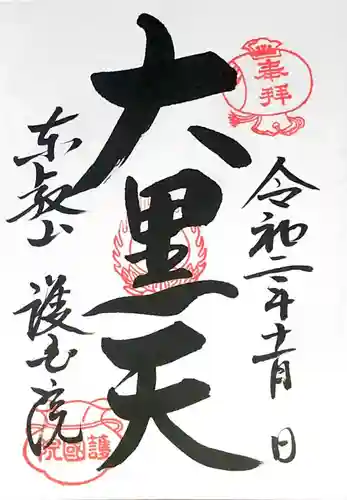 奉拝
令和二年十一月 日
大黒天
東叡山 護国院
護國院